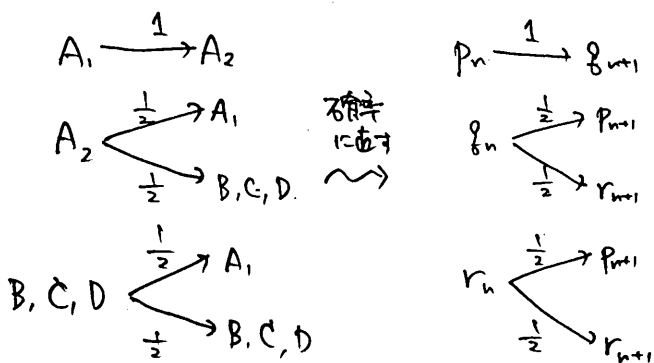 A₁ →(1) A₂
A₂ →(1/2) A₁
A₂ →(1/2) B, C, D.
B, C, D →(1/2) A₁
B, C, D →(1/2) B, C, D
確率
に直す
pₙ →(1) qₙ₊₁
qₙ →(1/2) pₙ₊₁
qₙ →(1/2) rₙ₊₁
rₙ →(1/2) pₙ₊₁
rₙ →(1/2) rₙ₊₁